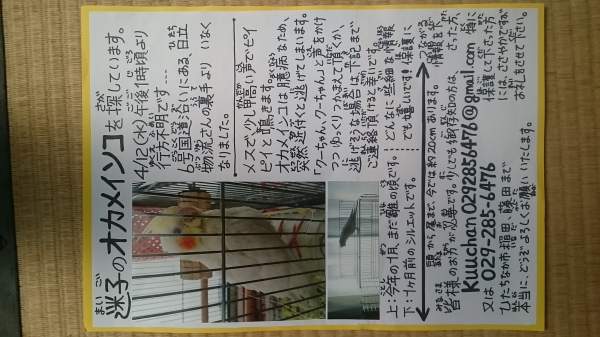 迷子のオカメインコを探しています。
4/12(水)午後1時頃より
行方不明です……
6号国道沿いにある日立
物流さんの裏手よりいなく
なりました。
メスで少し甲高い声でピイ
ピイと鳴きます。
オカメインコは臆病なため、
突然近付くと逃げてしまいます。
「クーちゃん、クーちゃん」と声をかけ
つつゆっくりつかまえて頂くか、
逃げそうな場合は下記まで
ご連絡頂けると幸いです。
上:今年の1月、まだ雛の頃です。
下:1ヶ月前のシルエットです。
どんなに些細な情報
でも嬉しいです!保護に
つながる
頭から尾まで、今では約20cmあります。
皆様のお力が必要です。少しでも御存知の方は、
情報を
さった方、
Kuuchan0292856476@gmail.com 特に
又は 029-285-6476
保護して下さった方
には、ささやかですが
お礼をさせて下さい。
ひたちなか市稲田 藤田まで
本当に、どうぞよろしくお願いいたします。